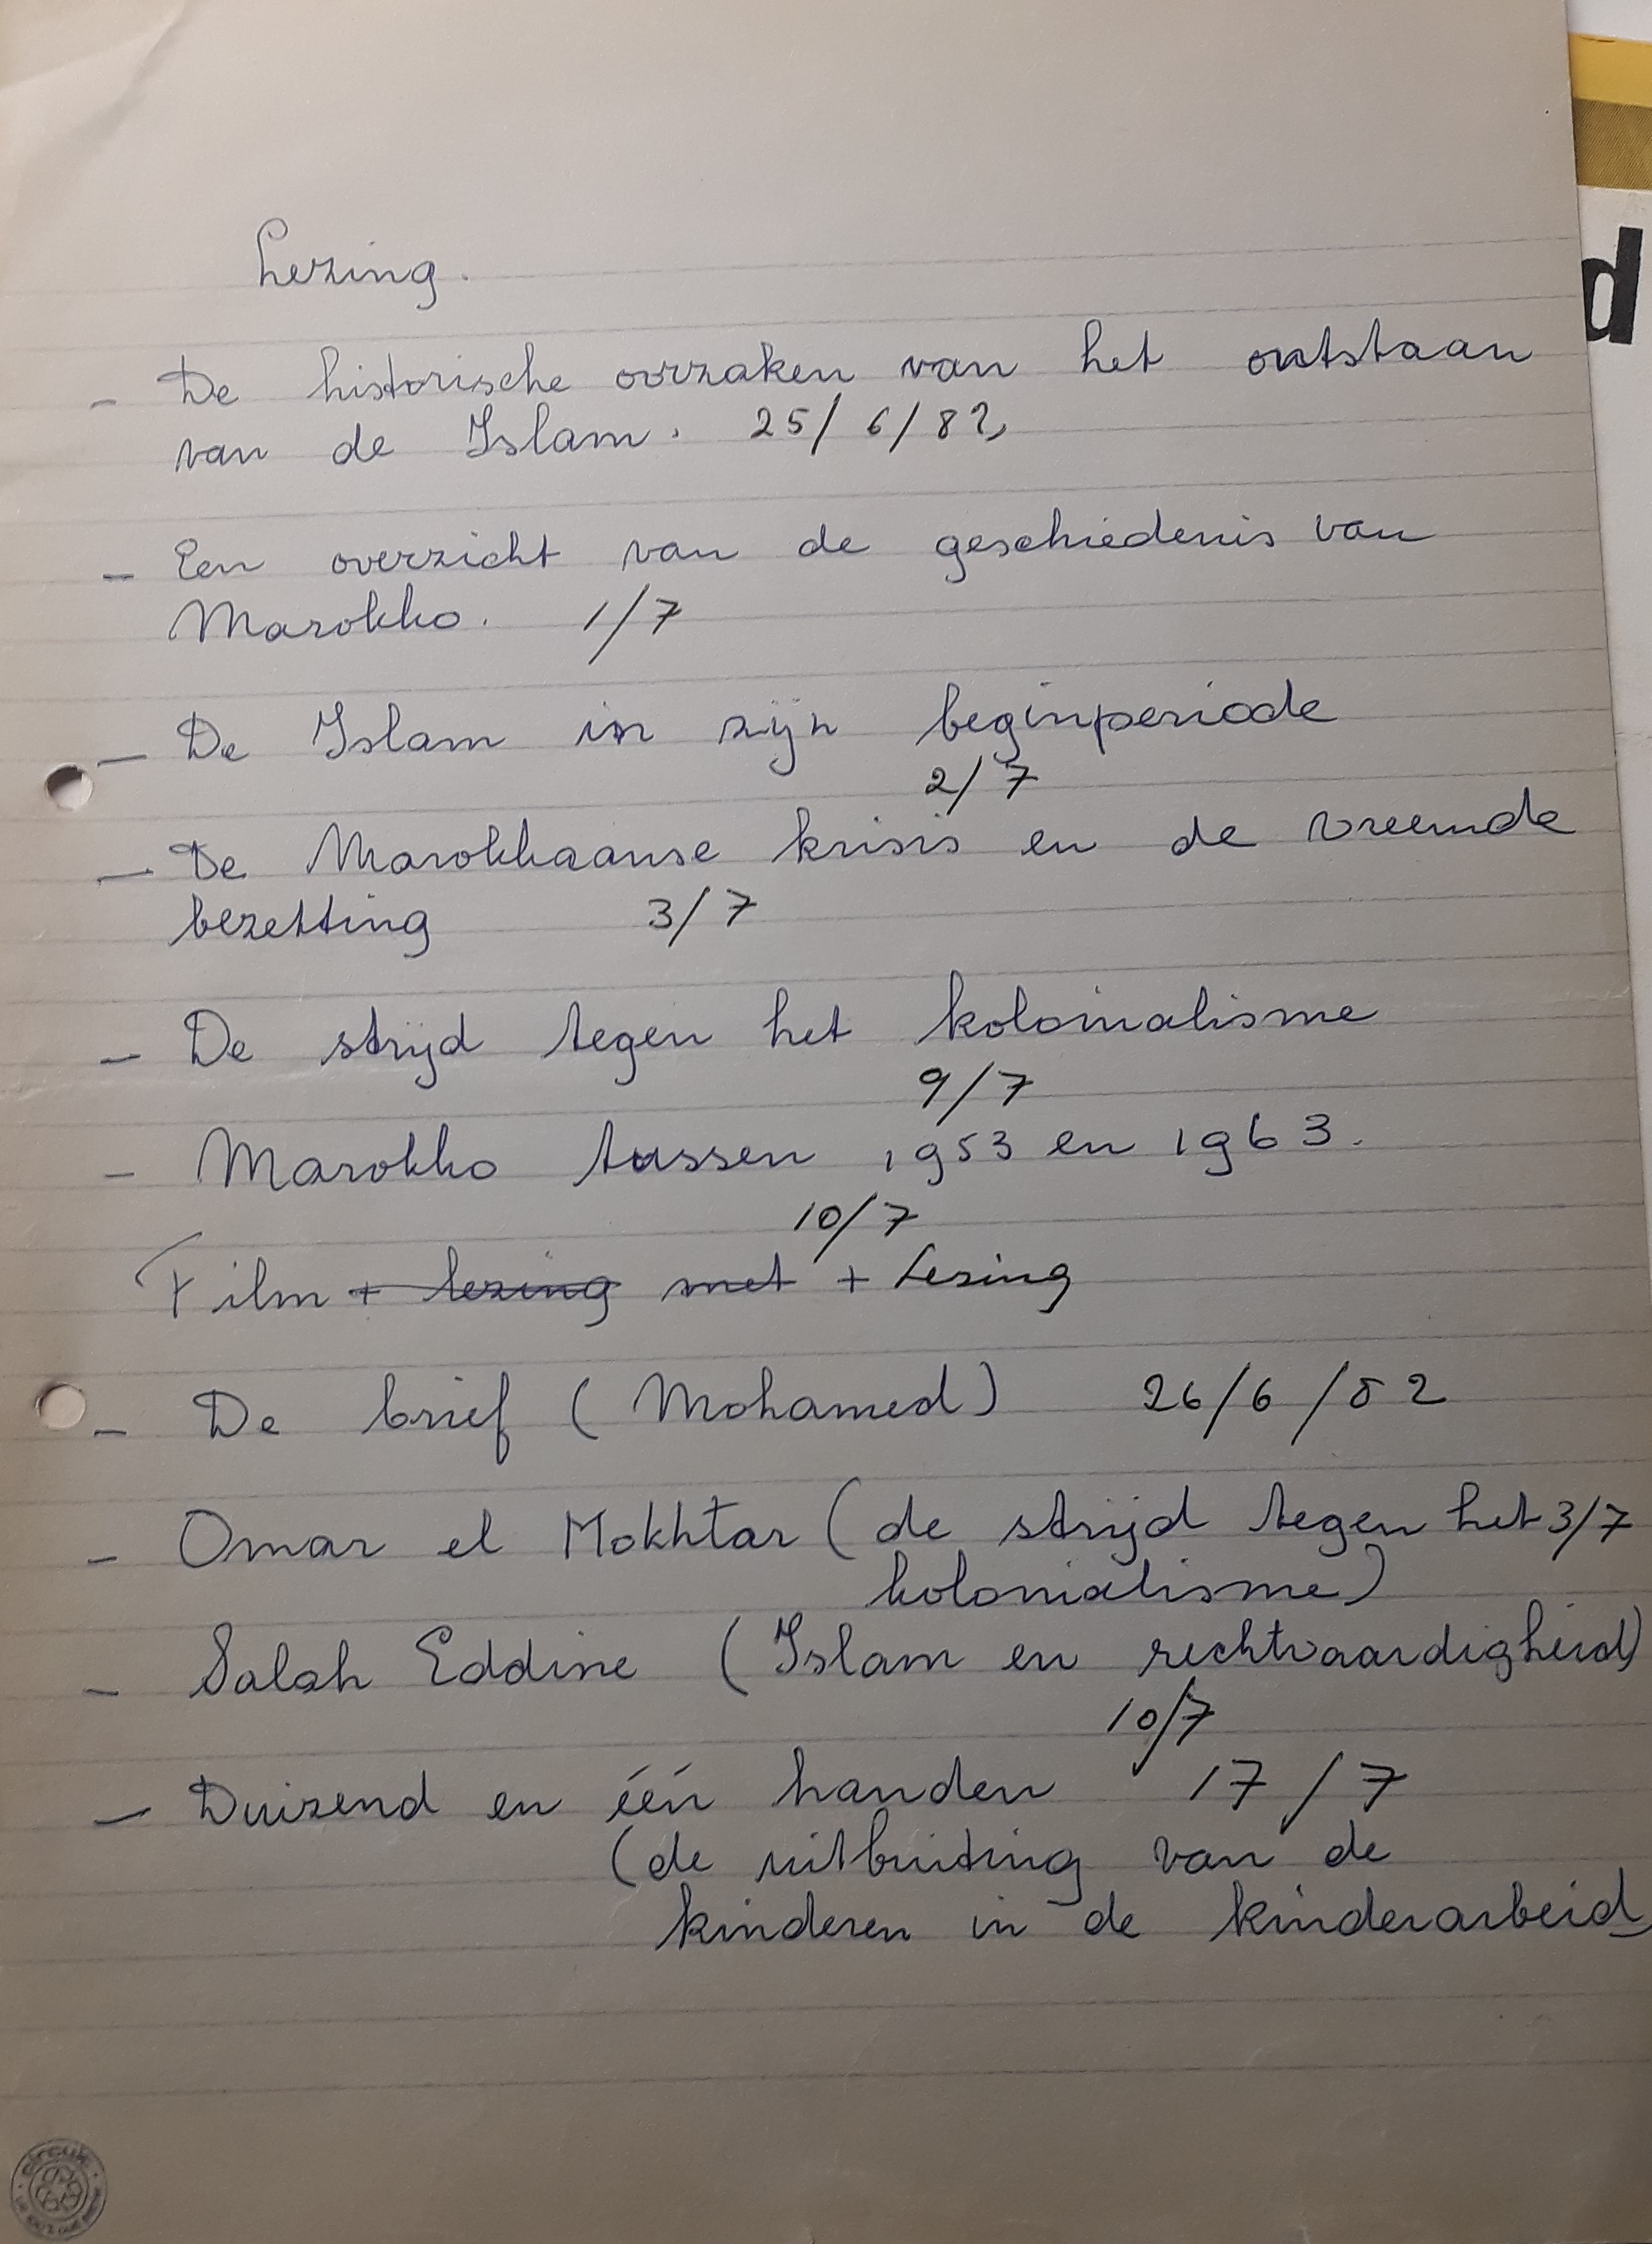 Lezing.
- De historische oorzaken van het ontstaan
van de Islam. 25/6/82
- Een overzicht van de geschiedenis van
Marokko. 1/7
- De Islam in zijn beginperiode
2/7
- De Marokkaanse krisis en de vreemde
bezetting 3/7
- De strijd tegen het kolonialisme
9/7
- Marokko tussen 1953 en 1963.
10/7
Film + lezing met + Lezing
- De brief (Mohamed) 26/6/82
- Omar el Mokhtar (de strijd tegen het 3/7
kolonialisme)
- Salah Eddine (Islam en rechtvaardigheid)
10/7
- Duizend en één handen 17/7
(de uitbuiting van de
kinderen in de kinderarbeid
d
circuit